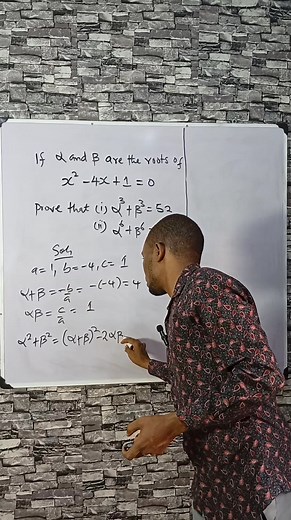 If α and β are the roots of
x² - 4x + 1 = 0
Prove that (i) α³ + β³ = 52
(ii) α⁶ + β⁶ =
Soln
a = 1, b = -4, c = 1
α + β = -b/a = -(-4) = 4
αβ = c/a = 1
α² + β² = (α + β)² - 2αβ